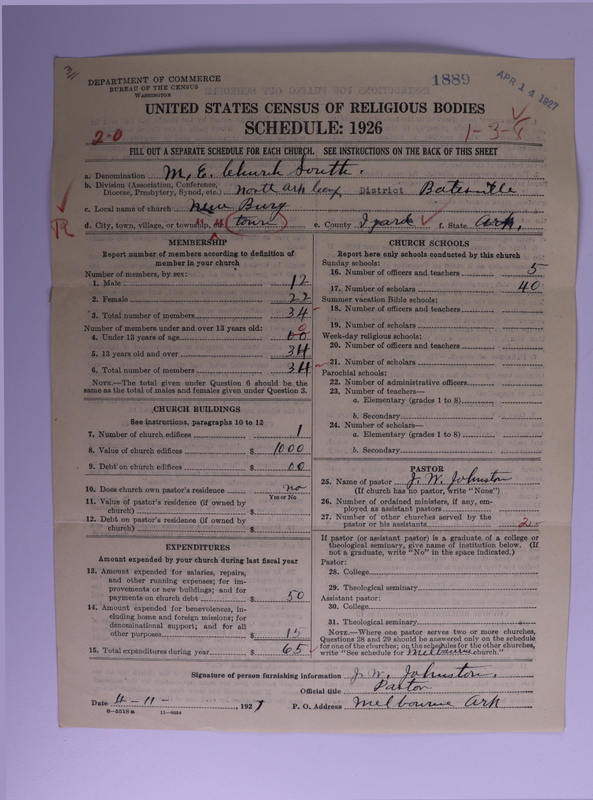 DEPARTMENT OF COMMERCE
BUREAU OF THE CENSUS
WASHINGTON
1889
APR 14 1927
UNITED STATES CENSUS OF RELIGIOUS BODIES
SCHEDULE: 1926
2-0
FILL OUT A SEPARATE SCHEDULE FOR EACH CHURCH. SEE INSTRUCTIONS ON THE BACK OF THIS SHEET
a. Denomination M. E. Church South.
b. Division (Association, Conference, Diocese, Presbytery, Synod, etc.) North Ark Conf District Batesville
c. Local name of church New Burg
d. City, town, village, or township, town e. County Izard f. State Ark.
R
MEMBERSHIP
Report number of members according to definition of
member in your church
Number of members, by sex:
1. Male 12
2. Female 22
3. Total number of members 34
Number of members under and over 13 years old:
4. Under 13 years of age 00 0
5. 13 years old and over 34
6. Total number of members 34
NOTE.—The total given under Question 6 should be the
same as the total of males and females given under Question 3.
CHURCH BUILDINGS
See instructions, paragraphs 10 to 12
7. Number of church edifices 1
8. Value of church edifices $ 1000
9. Debt on church edifices $ 00
10. Does church own pastor's residence no
Yes or No
11. Value of pastor's residence (if owned by
church) $
12. Debt on pastor's residence (if owned by
church) $
EXPENDITURES
Amount expended by your church during last fiscal year
13. Amount expended for salaries, repairs,
and other running expenses; for im-
provements or new buildings; and for
payments on church debt $ 50
14. Amount expended for benevolences, in-
cluding home and foreign missions; for
denominational support; and for all
other purposes $ 15
15. Total expenditures during year $ 65
CHURCH SCHOOLS
Report here only schools conducted by this church
Sunday schools:
16. Number of officers and teachers 5
17. Number of scholars 40
Summer vacation Bible schools:
18. Number of officers and teachers
19. Number of scholars
Week-day religious schools:
20. Number of officers and teachers
21. Number of scholars
Parochial schools:
22. Number of administrative officers
23. Number of teachers—
a. Elementary (grades 1 to 8)
b. Secondary
24. Number of scholars—
a. Elementary (grades 1 to 8)
b. Secondary
PASTOR
25. Name of pastor J. W. Johnston
(If church has no pastor, write "None")
26. Number of ordained ministers, if any, em-
ployed as assistant pastors
27. Number of other churches served by the
pastor or his assistants 2
If pastor (or assistant pastor) is a graduate of a college or
theological seminary, give name of institution below. (If
not a graduate, write "No" in the space indicated.)
Pastor:
28. College
29. Theological seminary
Assistant pastor:
30. College
31. Theological seminary
NOTE.—Where one pastor serves two or more churches,
Questions 28 and 29 should be answered only on the schedule
for one of the churches; on the schedules for the other churches,
write "See schedule for Melbourne church."
Signature of person furnishing information J. W. Johnston.
Official title Pastor
Date 4-11-, 1927 P. O. Address Melbourne Ark
8-5518a 11-9024